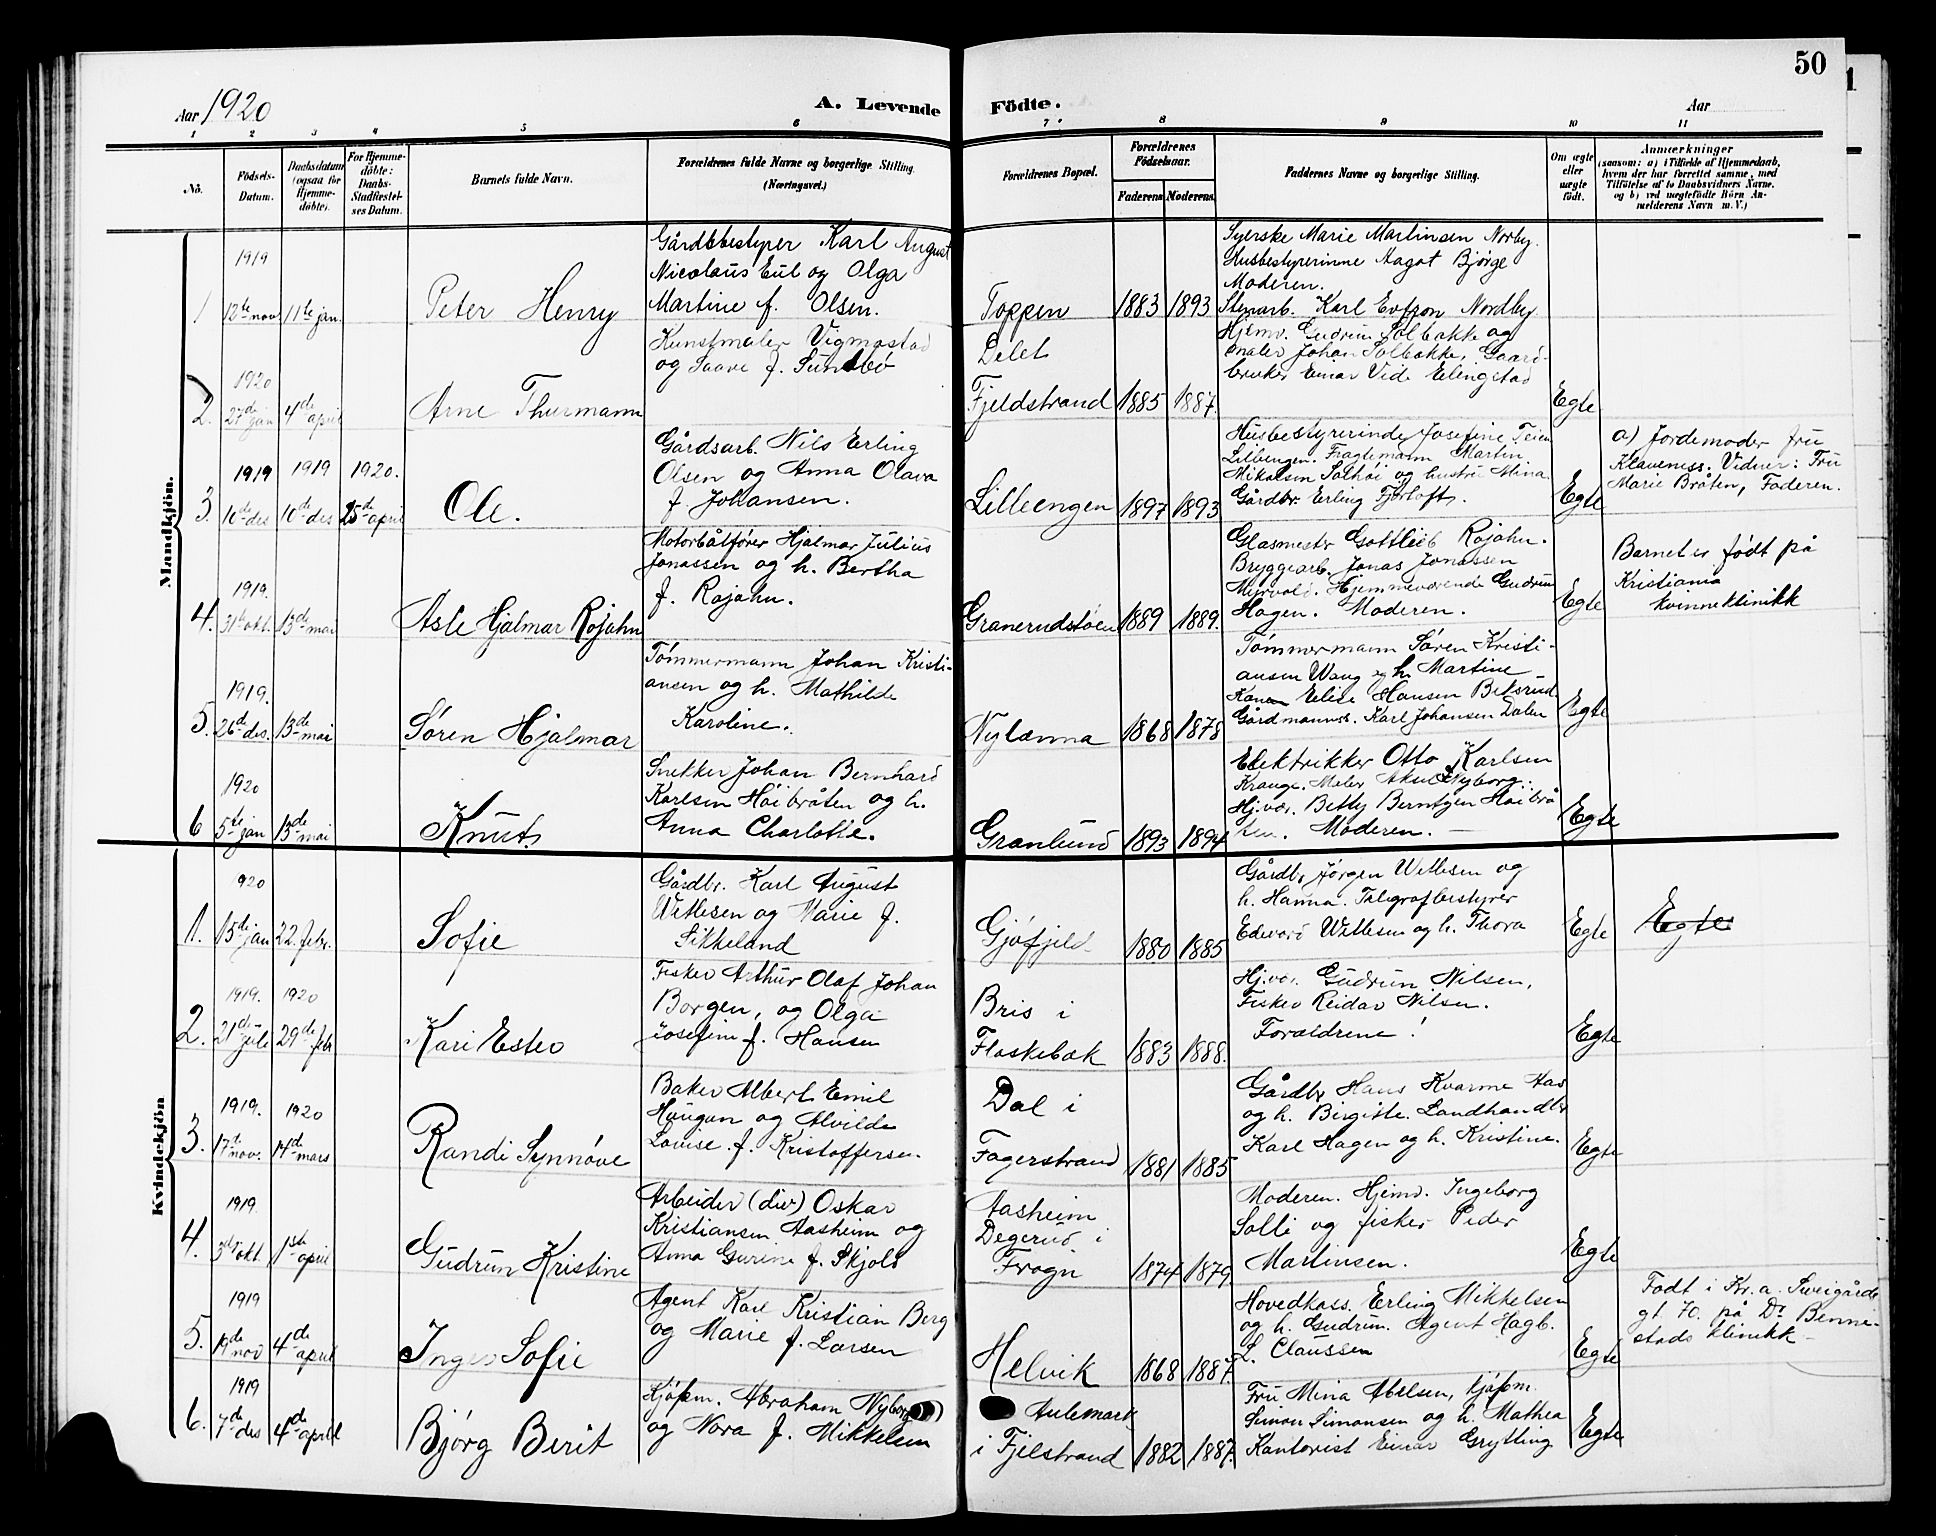 50
Aar 1920
A. Levende Födte.
Aar
1 2 3 4 5 6 7 8 9 10 11
No.
Födsels-Datum.
Daabsdatum (ogsaa for Hjemme-döbte).
For Hjemme-döbte: Daabs-Stadfæstel-ses Datum.
Barnets fulde Navn.
Forældrenes fulde Navne og borgerlige Stilling. (Næringsvei.)
Forældrenes Bopæl.
Forældrenes Födselsaar.
Faderens Moderens
Faddernes Navne og borgerlige Stilling.
Om ægte eller uægte födt.
Anmærkninger
(saasom: a) i Tilfælde af Hjemmedaab,
hvem der har forrettet samme, med
Tilföielse af to Daabsvidners Navne.
og b) ved uægtefödte Börn An-
melderens Navn m. V.)
Mandkjön.
1
1919
12te nov
11te jan.
Peter Henry
Gårdbestyrer Karl August
Nicolaus Eul og Olga
Martine f. Olsen.
Toppen
1883 1893
Syerske Marie Martinsen Norby.
Husbestyrerinne Aagot Bjørge
Moderen.
Stenarb. Karl Nordby
2.
1920
27de jan
4de april
Arne Thurmann
Kunstmaler Vigmostad
og Saave f. Sundbö
Delet
Fjeldstrand
1885 1887.
Hjemv. Gudrun Solbakke og
maler Johan Solbakke, Gaard-
bruker Einar Vide Ellingstad
Egte
3.
1919
16de des
1919
16de des
1920.
25de april
Ole.
Gårdsarb. Nils Erling
Olsen og Anna Olava
f. Johansen.
Lilleengen
1897 1893
Husbestyrerinde Josefine Teien
Lilleengen. Fragtemann Martin
Mikalsen Solhöi og hustru Mina
Gårdbr. Erling Fjørtoft.
Egte
a) Jordemoder fru
Klaveness. Vidner: Fru
Marie Bråten, Faderen.
4.
1919.
31te okt.
13de mai
Asle Hjalmar Rojahn
Motorbåtfører Hjalmar Julius
Jonassen og h. Bertha
f. Rojahn.
Granerudstöen
1889 1889.
Glasmestr Gottlieb Rojahn.
Bryggearb. Jonas Jonassen
Myrvold. Hjemmeværende Gudrun
Hagen. Moderen.
Egte
Barnet er født på
Kristiania
kvinneklinikk
5.
1919.
26de des.
13de mai
Søren Hjalmar
Tömmermann Johan Kristi-
ansen og h. Mathilde
Karoline.
Nylænna
1868 1878
Tömmermann Sören Kristi-
ansen Wang og h. Martine
Elise Hansen Beksrud
Gårdmannss. Karl Johansen Dalen
Egte
6
1920
5te jan
13de mai
Knut
Snekker Johan Bernhard
Karlsen Höibråten og h.
Anna Charlotte.
Granlund
1893 1894
Elektrikker Otto Karlsen
Krange. Maler Aksel Nyborg.
Hj.vær. Betty Berntzen Höibrå
ten. Moderen.
Egte
Kvindekjön
1.
1920
15de jan
22. febr.
Sofie
Gårdbr. Karl August
Wetlesen og Marie f.
Sikkeland
Gjöfjeld
1880 1885
Gårdbr Jörgen Wetlesen og
h. Hanna. Telegrafbestyrer
Edvard Wetlesen og h. Thora
Egte
Egte
2.
1919.
21de juli
1920
29de febr
Kari Ester
Fisker Arthur Olaf Johan
Borgen, og Olga
Josefine f. Hansen
Bris i
Flaskebæk
1883 1888.
Hj.vær. Gudrun Nilsen,
Fisker Reidar Nilsen.
Forældrene!
Egte
3.
1919.
17de nov.
1920
14de mars
Randi Synnöve
Baker Albert Emil
Haugan og Alvilde
Lovise f. Kristoffersen.
Dal i
Fagerstrand
1881 1885
Gårdbr Hans Kvarme Aas
og h. Birgitte. Landhandler
Karl Hagen og h. Kristine.
Egte
4.
1919.
3de okt.
1ste april
Gudrun Kristine
Arbeider (div) Oskar
Kristiansen Aasheim og
Anna Gurine f. Skjold
Aasheim
Degerud i
Frogn
1874 1879
Moderen. Hjemv. Ingeborg
Solli og fisker Peder
Martinsen.
Egte
5.
1919
19de nov
4de april
Inger Sofie
Agent Karl Kristian Berg
og Marie f. Larsen
Helvik
1868 1887.
Hovedkass. Erling Mikkelsen
og h. Gudrun. Agent Hagb.
L. Claussen
Egte
Født i Kr.a. Sweigårds
gt. 70. på Dr Benne-
stads klinikk
6.
1919
7de des
4de april
Bjørg Berit
Kjøpm. Abraham Nyborg
og Nora f. Mikkelsen
Aulemark
i Fjelstrand
1882 1887.
Fru Mina Abelsen, kjøpm.
Simon Simonsen og h. Mathea
Kontorist Einar Grytting
Egte